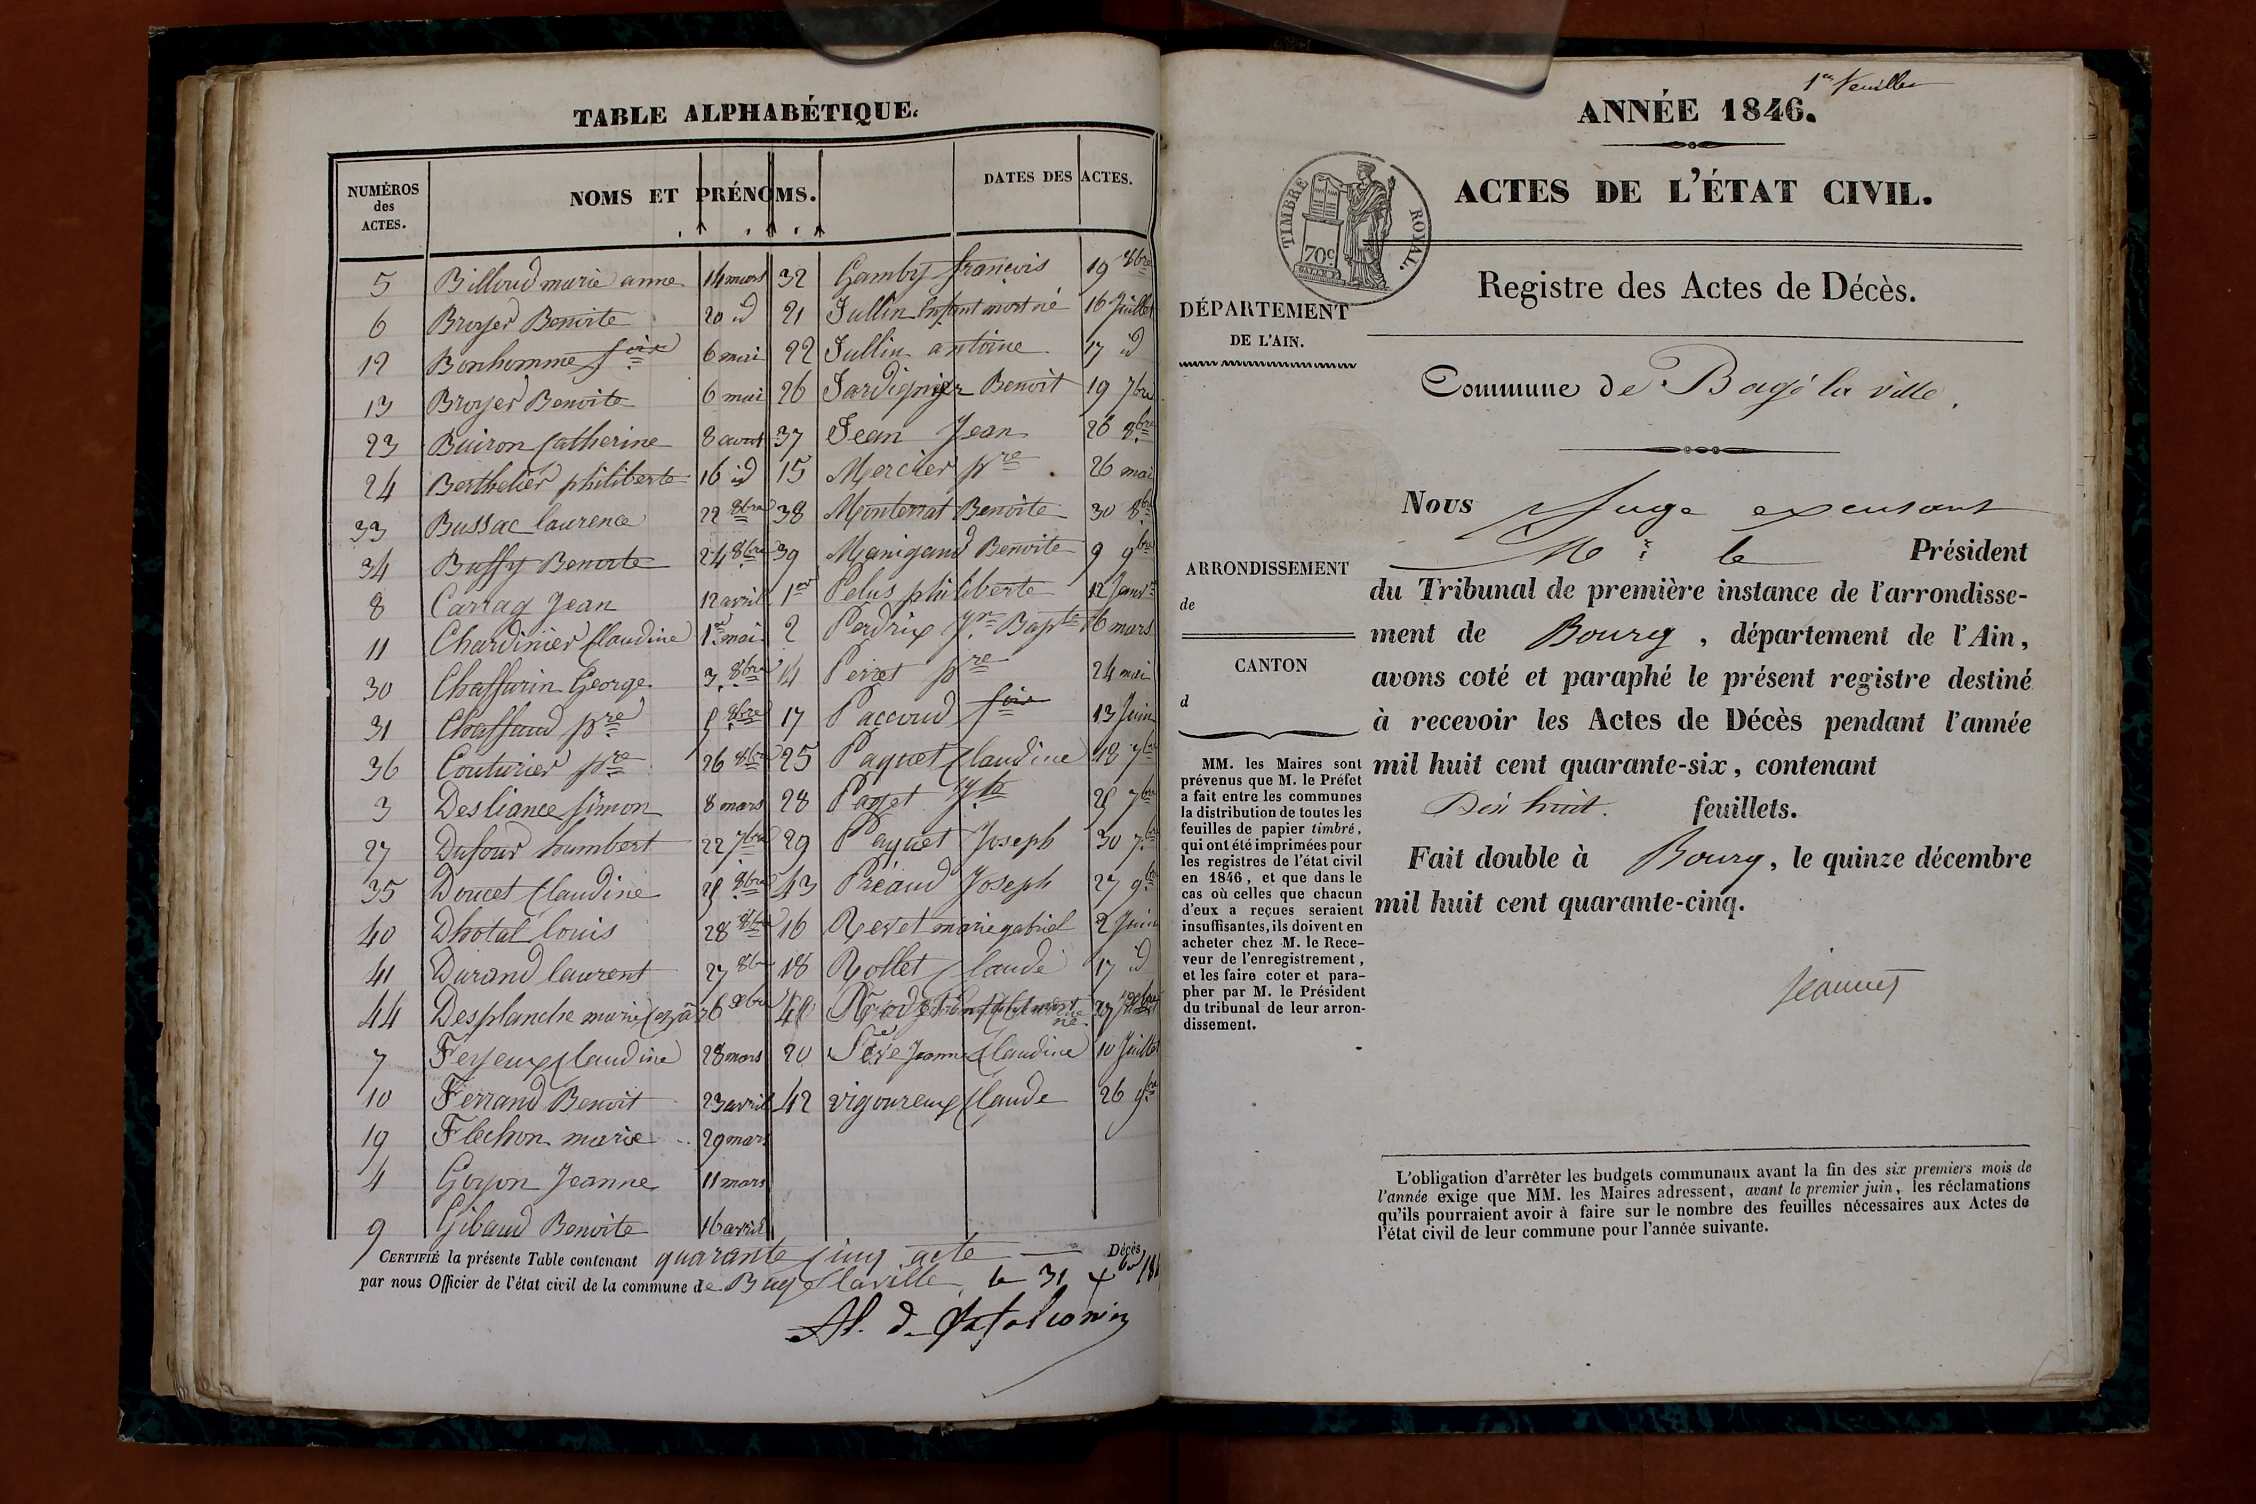 TABLE ALPHABÉTIQUE.
NUMÉROS
des
ACTES.
NOMS ET PRÉNOMS.
DATES DES ACTES.
5 Billoud marie anne 14 mars 32 Gamby françois 19 8bre
6 Broyer Benoite 20 id 21 Jullin Enfant mort né 16 Juillet
12 Bonhomme foix 6 mai 22 Jullin antoine 17 id
13 Broyer Benoite 6 mai 26 Jardignier Benoit 19 7bre
23 Buiron Catherine 8 aout 37 Jean Jean 26 8bre
24 Berthelier philiberte 16 id 15 Mercier pre 26 mai
33 Bussac laurence 22 8bre 38 Monterrat Benoite 30 8bre
34 Buffy Benoite 24 8bre 39 Manigand Benoite 9 9bre
8 Carrag Jean 12 avril 1er Pelus philiberte 12 Janvr
11 Chardinier Claudine 1er mai 2 Perdrix Jn Bapte 16 mars
30 Chaffurin George 3 8bre 14 Perret pre 24 mai
31 Chaffaud pre 5 8bre 17 Paccoud foix 13 Juin
36 Couturier pre 26 8bre 25 Paquet Claudine 18 7bre
3 Desliance Simon 8 mars 28 Paget Jh 25 7bre
27 Dufour humbert 22 7bre 29 Paquet Joseph 30 7bre
35 Doucet Claudine 25 8bre 43 Préaud Joseph 27 9bre
40 Dhotal louis 28 8bre 16 Revet marie gabriel 2 Juin
41 Durand laurent 27 8bre 18 Rollet Claude 17 id
44 Desplanche marie 26 27
7 Feyeux Claudine 28 mars 20 Sève Jeanne Claudine 10 Juillet
10 Ferrand Benoit 23 avril 42 vigoureux Claude 26 9bre
19 Fléchon marie 29 mars
4 Goyon Jeanne 11 mars
9 Gibaud Benoite 16 avril
CERTIFIÉ la présente Table contenant quarante cinq acte Décès
par nous Officier de l'état civil de la commune de Bagé laville, le 31 Xbre
1er feuillet
ANNÉE 1846.
ACTES DE L'ÉTAT CIVIL.
TIMBRE ROYAL.
70c.
Registre des Actes de Décès.
DÉPARTEMENT
DE L'AIN.
Commune de Bagé la ville.
Nous Juge exerçant
Mr le Président
du Tribunal de première instance de l'arrondisse-
ment de Bourg, département de l'Ain,
avons coté et paraphé le présent registre destiné
à recevoir les Actes de Décès pendant l'année
mil huit cent quarante-six, contenant
Dix huit feuillets.
Fait double à Bourg, le quinze décembre
mil huit cent quarante-cinq.
ARRONDISSEMENT
de
CANTON
d
MM. les Maires sont
prévenus que M. le Préfet
a fait entre les communes
la distribution de toutes les
feuilles de papier timbré,
qui ont été imprimées pour
les registres de l'état civil
en 1846, et que dans le
cas où celles que chacun
d'eux a reçues seraient
insuffisantes, ils doivent en
acheter chez M. le Rece-
veur de l'enregistrement,
et les faire coter et para-
pher par M. le Président
du tribunal de leur arron-
dissement.
L'obligation d'arrêter les budgets communaux avant la fin des six premiers mois de
l'année exige que MM. les Maires adressent, avant le premier juin, les réclamations
qu'ils pourraient avoir à faire sur le nombre des feuilles nécessaires aux Actes de
l'état civil de leur commune pour l'année suivante.